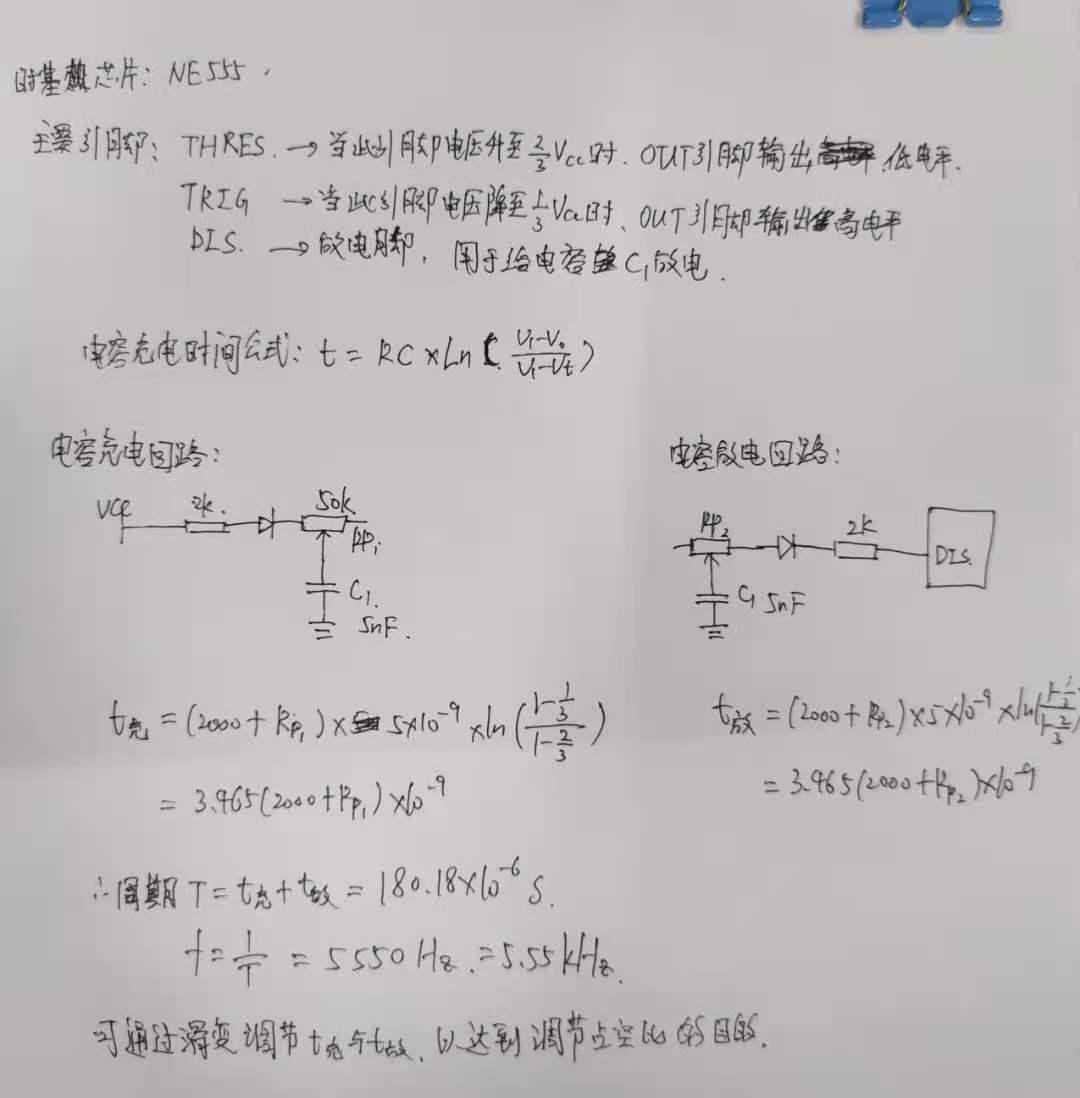 时基芯片: NE555.
主要引脚: THRES. → 当此引脚电压升至 2/3 Vcc 时. OUT引脚输出低电平.
TRIG → 当此引脚电压降至 1/3 Vcc 时、OUT引脚输出高电平
DIS. → 放电脚, 用于给电容 C₁ 放电.
电容充电时间公式: t = RC × Ln ( (V₁-V₀)/(V₁-Vt) )
电容充电回路: 电容放电回路:
VCC 2k. 50k RP₁ C₁. 5nF.
RP₂ 2k DIS. C₁ 5nF
t充 = (2000 + RP₁) × 5×10⁻⁹ × ln ( (1-1/3)/(1-2/3) )
= 3.465(2000+RP₁)×10⁻⁹
t放 = (2000 + RP₂) × 5×10⁻⁹ × ln( (1-1/3)/(1-2/3) )
= 3.465(2000+RP₂)×10⁻⁹
∴ 周期 T = t充 + t放 = 180.18×10⁻⁶ S.
f = 1/T = 5550 Hz. = 5.55 kHz.
可通过滑变调节 t充 与 t放, 以达到调节占空比的目的.